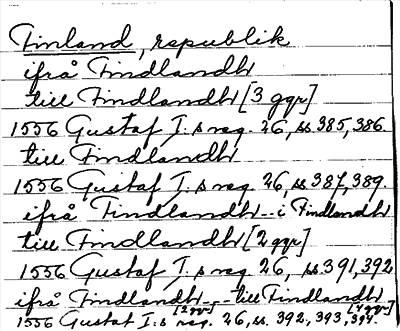 Finland, republik
ifrå Findlandh
till Findlandh [3 ggr]
1556 Gustaf I:s reg. 26, ss 385, 386.
till Findlandh
1556 Gustaf I:s reg. 26, ss 387, 389.
ifrå Findlandh - i Findlandh
till Findlandh [2 ggr]
1556 Gustaf I:s reg. 26, ss 391, 392
ifrå Findlandh [2 ggr], till Findlandh [4 ggr]
1556 Gustaf I:s reg. 26, ss. 392, 393, 394.